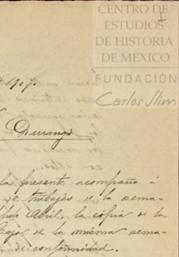 CENTRO DE
ESTUDIOS
DE HISTORIA
DE MÉXICO
FUNDACIÓN
Carlos Slim
1907.
Durango
la presente acompaño á
de trabajos de la sema-
Abril, la copia de la
de la misma sema-
de conformidad.